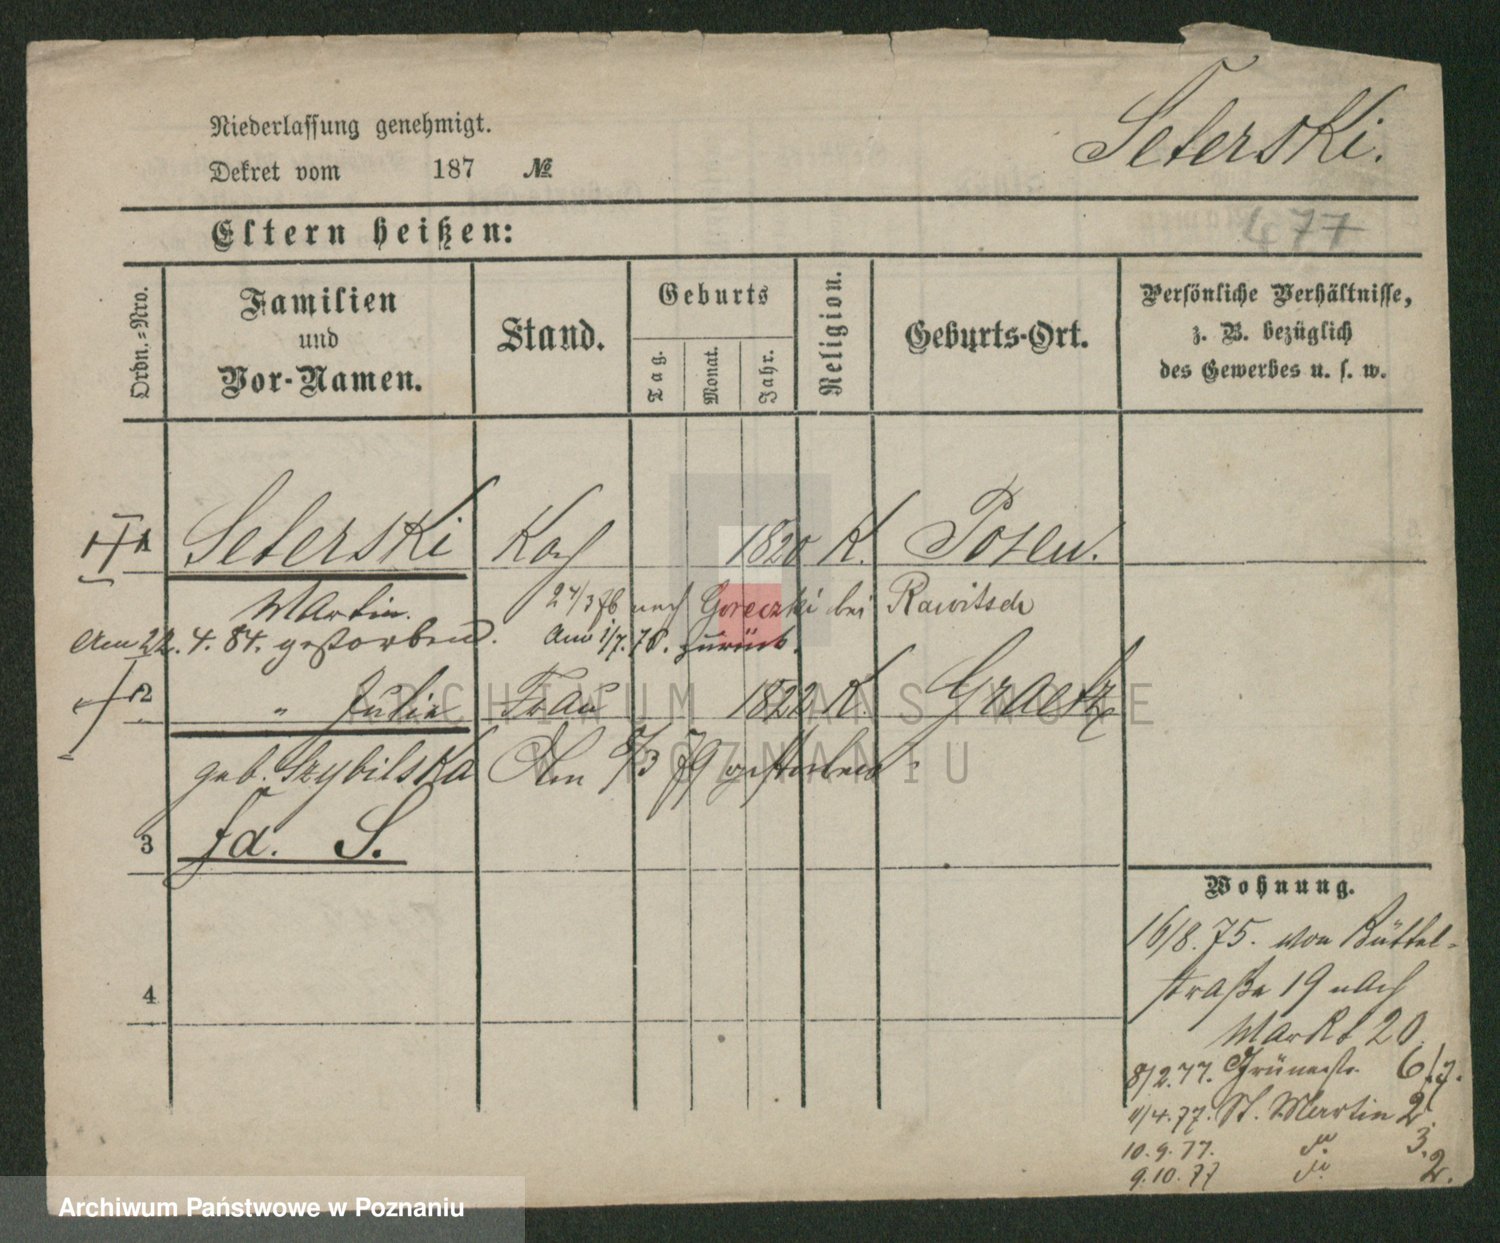 Niederlassung genehmigt.
Dekret vom 187 №
Seterski.
477
Eltern heißen:
Ordn.-Nro.
Familien
und
Vor-Namen.
Stand.
Geburts
Tag.
Monat.
Jahr.
Religion.
Geburts-Ort.
Persönliche Verhältnisse,
z. B. bezüglich
des Gewerbes u. s. w.
1 Seterski Koch 1820 K. Posen.
Martin. 24/3 76 nach Goreczki bei Rawitsch
Am 22. 4. 84. gestorben. Am 1/7. 78. zurück.
2 " Julie Frau 1822 K Graetz
geb. Szybilska Am 5/3 79 gestorben.
3 fd. S.
4
Wohnung.
16/8. 75. von Büttel-
straße 19 nach
Markt 20
8/2. 77. Grünestr. 6/7.
11/4. 77. St. Martin 2.
10. 9. 77. do 3.
9. 10. 77 do 2.
ARCHIWUM PAŃSTWOWE
W POZNANIU
Archiwum Państwowe w Poznaniu